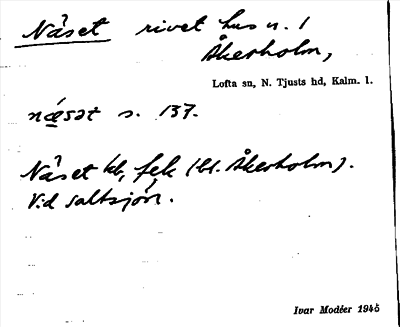 Näset rivet hus u. 1
Åkerholm,
Lofta sn, N. Tjusts hd, Kalm. l.
næ̀sət s. 137.
Näset kb, fek (bl. Åkerholm).
Vid saltsjön.
Ivar Modéer 1945